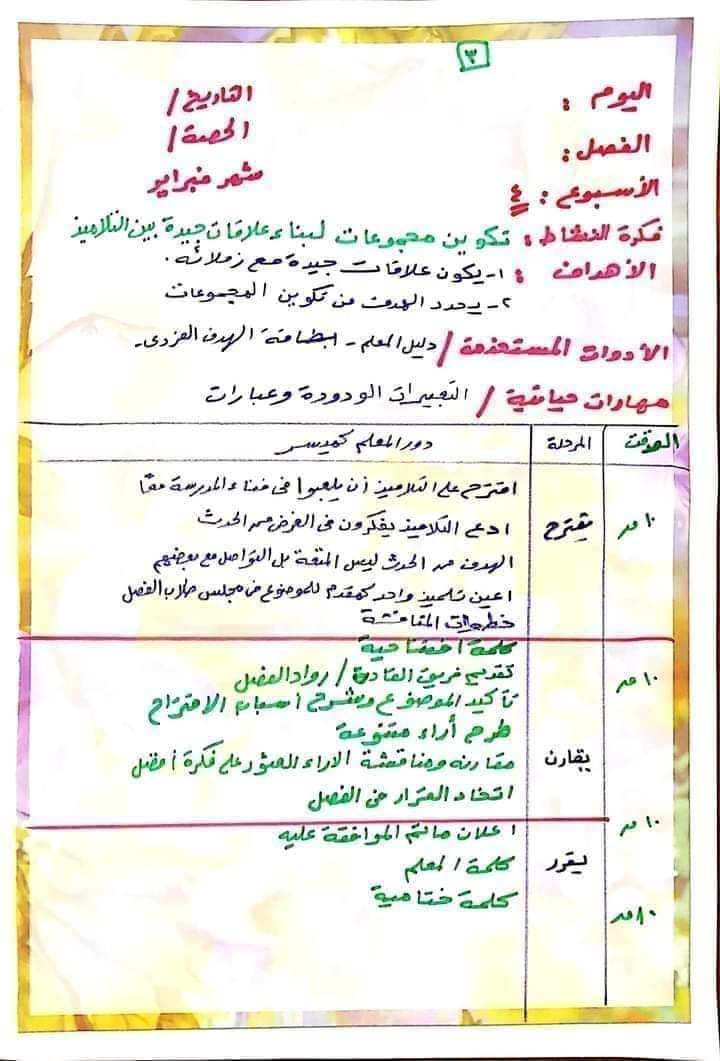 ٣
اليوم :
التاريخ /
الفصل :
الحصة /
الأسبوع : ٤
شهر فبراير
فكرة النشاط : تكوين مجموعات لبناء علاقات جيدة بين التلاميذ
الأهداف : ١- يكون علاقات جيدة مع زملائه .
٢- يحدد الهدف من تكوين المجموعات
الأدوات المستخدمة / دليل المعلم - بطاقة الهدف الفردى -
مهارات حياتية / التعبيرات الودودة وعبارات
الوقت | المرحلة | دور المعلم كميسر
١٠ مد | يقترح | اقترح على التلاميذ أن يلعبوا فى فناء المدرسة معًا
ادعم التلاميذ يفكرون فى الغرض من الحدث
الهدف من الحدث ليس المتعة بل التواصل مع بعضهم
اعين تلميذ واحد كمقدم للموضوع فى مجلس طلاب الفصل
خطوات المناقشة
كلمة افتتاحية
١٠ مد | يقارن | تقديم فريق القادة / رواد الفصل
تأكيد الموضوع وشرح أسباب الاقتراح
طرح أراء متنوعة
مقارنه ومناقشة الاراء العثور على فكرة أفضل
اتخاذ القرار فى الفصل
١٠ مد | يقرر | اعلان ماتم الموافقة عليه
كلمة المعلم
٨٠ مد | كلمة ختامية